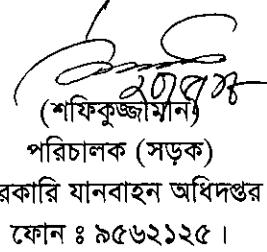 (শফিকুজ্জামান)
পরিচালক (সড়ক)
রকারি যানবাহন অধিদপ্তর
ফোন ঃ ৯৫৬২১২৫।